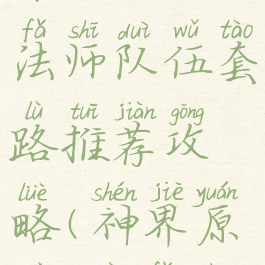 fǎ shī duì wǔ tào
法师队伍套
lù tuī jiàn gōng
路推荐攻
lüè shén jiè yuán
略(神界原